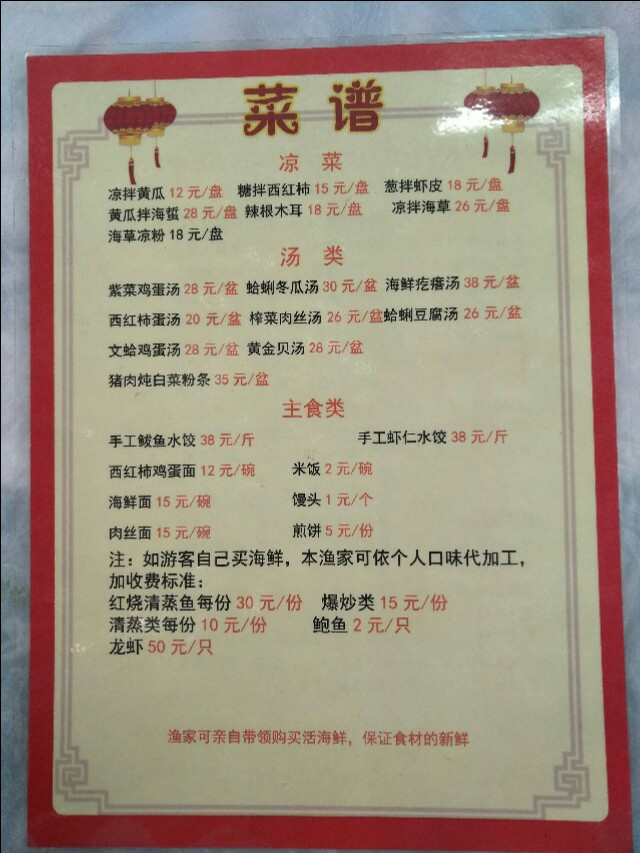 菜谱
凉 菜
凉拌黄瓜 12 元/盘 糖拌西红柿 15 元/盘 葱拌虾皮 18 元/盘
黄瓜拌海蜇 28 元/盘 辣根木耳 18 元/盘 凉拌海草 26 元/盘
海草凉粉 18 元/盘
汤 类
紫菜鸡蛋汤 28 元/盆 蛤蜊冬瓜汤 30 元/盆 海鲜疙瘩汤 38 元/盆
西红柿蛋汤 20 元/盆 榨菜肉丝汤 26 元/盆 蛤蜊豆腐汤 26 元/盆
文蛤鸡蛋汤 28 元/盆 黄金贝汤 28 元/盆
猪肉炖白菜粉条 35 元/盆
主食类
手工鲅鱼水饺 38 元/斤 手工虾仁水饺 38 元/斤
西红柿鸡蛋面 12 元/碗 米饭 2 元/碗
海鲜面 15 元/碗 馒头 1 元/个
肉丝面 15 元/碗 煎饼 5 元/份
注：如游客自己买海鲜，本渔家可依个人口味代加工，
加收费标准：
红烧清蒸鱼每份 30 元/份 爆炒类 15 元/份
清蒸类每份 10 元/份 鲍鱼 2 元/只
龙虾 50 元/只
渔家可亲自带领购买活海鲜，保证食材的新鲜